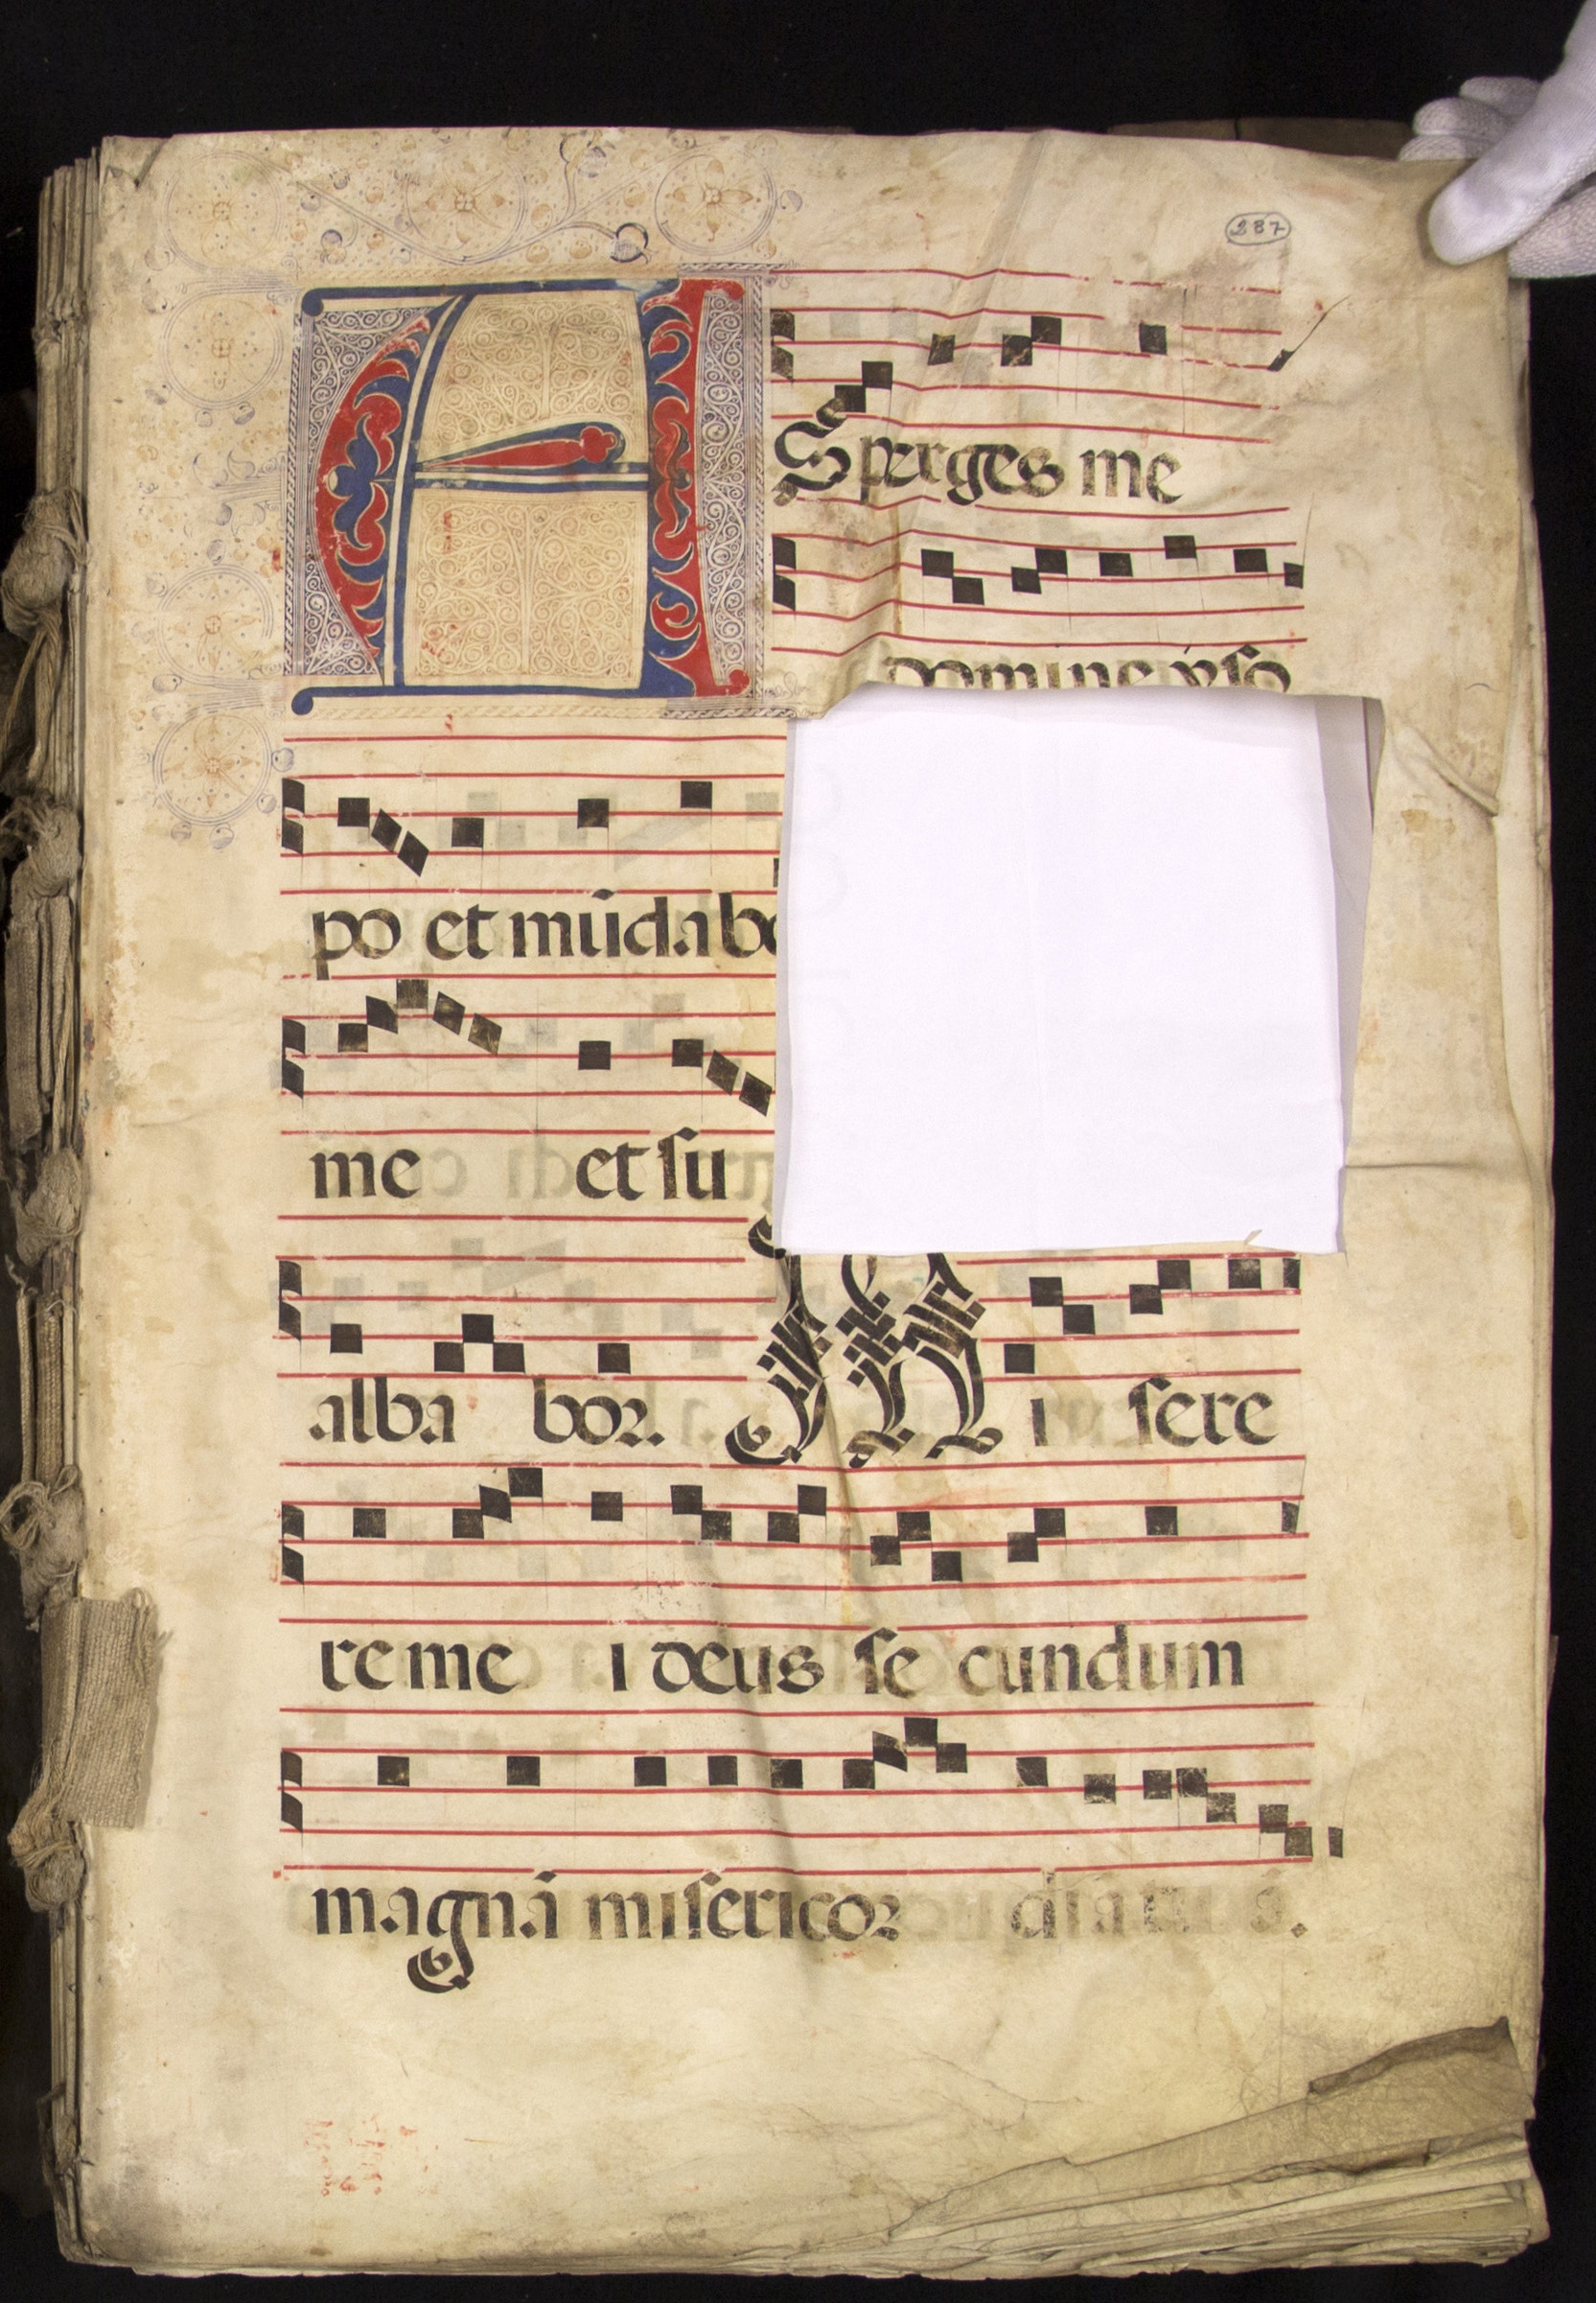 287
ASperges me
domine yso
po et mūdabo
me et su
alba bor. M i sere
re me i deus se cundum
magnā misericor dia tu ā.